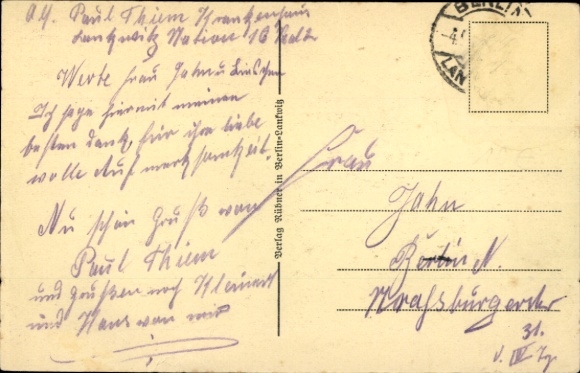 Paul Thiem Krankenhaus
Lankwitz Station 16
Werte Frau Jahn u Lieschen
Ich sage hiermit meinen
besten Dank, für ihre liebe
volle Aufmerksamkeit
Nu schön Gruß von
Paul Thiem
und grüßen noch
und Hans von mir
Verlag Rübner in Berlin-Lankwitz
BERLIN
LAN
Frau
Jahn
Berlin N.
Straßburgerstr
31.
v. IV Tr